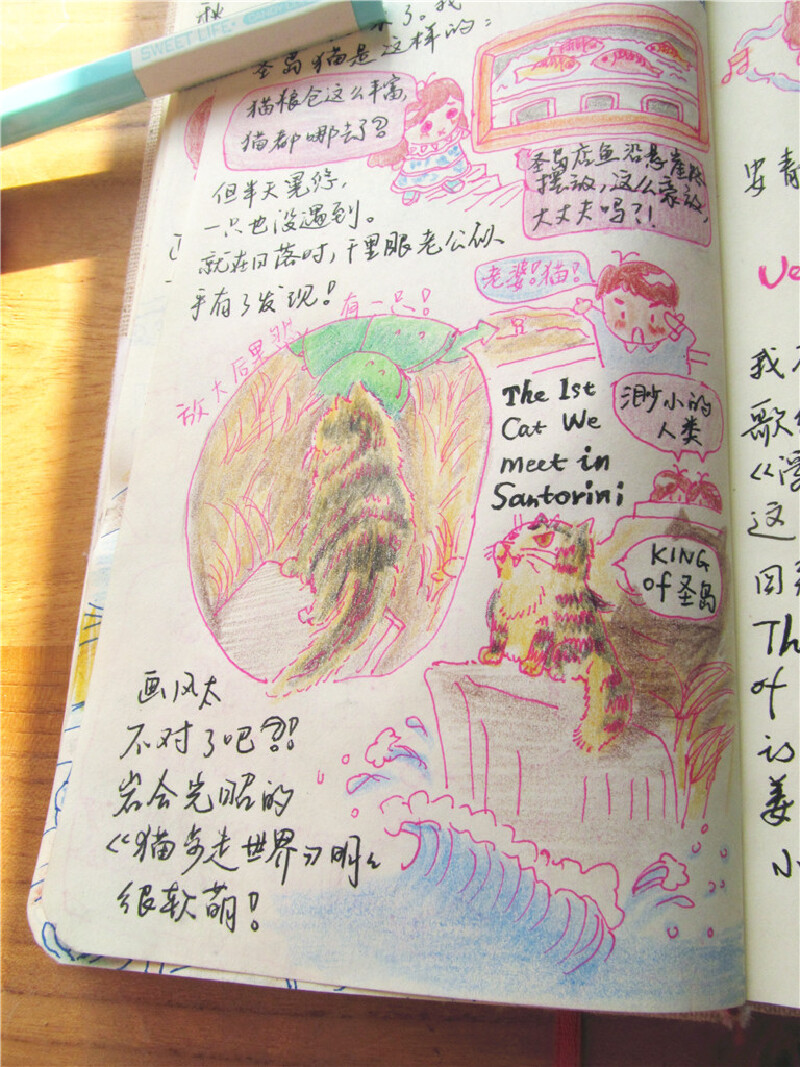 SWEET LIFE
秋
了。我
圣岛猫是这样的:
猫粮仓这么丰富,
猫都哪去了?
圣岛店鱼沿悬崖
摆放,这么豪放,
大丈夫吗?!
但半天晃悠,
一只也没遇到。
就在日落时,千里眼老公似
乎有了发现!
老婆!猫!
有一只!
放大后果然
The 1st
Cat We
meet in
Santorini
渺小的
人类
KING
of 圣岛
画风太
不对了吧?!
岩合光昭的
《猫步走世界》明明
很软萌!
安静
Ve
我
歌
《
这
回
Th
of
诗
姜
小